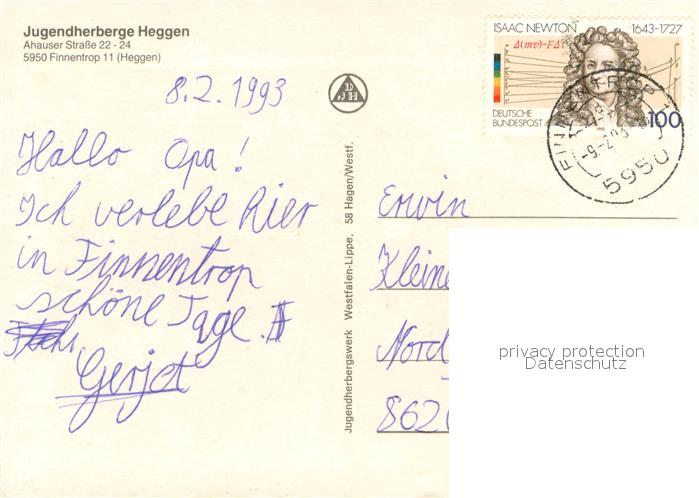 Jugendherberge Heggen
Ahauser Straße 22 - 24
5950 Finnentrop 11 (Heggen)
8.2.1993
Hallo Opa!
Ich verlebe hier
in Finnentrop
schöne Tage.
Gerjet
Jugendherbergswerk Westfalen-Lippe, 58 Hagen/Westf.
ISAAC NEWTON 1643-1727
Δ(mv)~FΔt
DEUTSCHE
BUNDESPOST
100
FINNENTROP 1
-9.-2.93
5950
Erwin
Kleine
Nord
862
privacy protection
Datenschutz